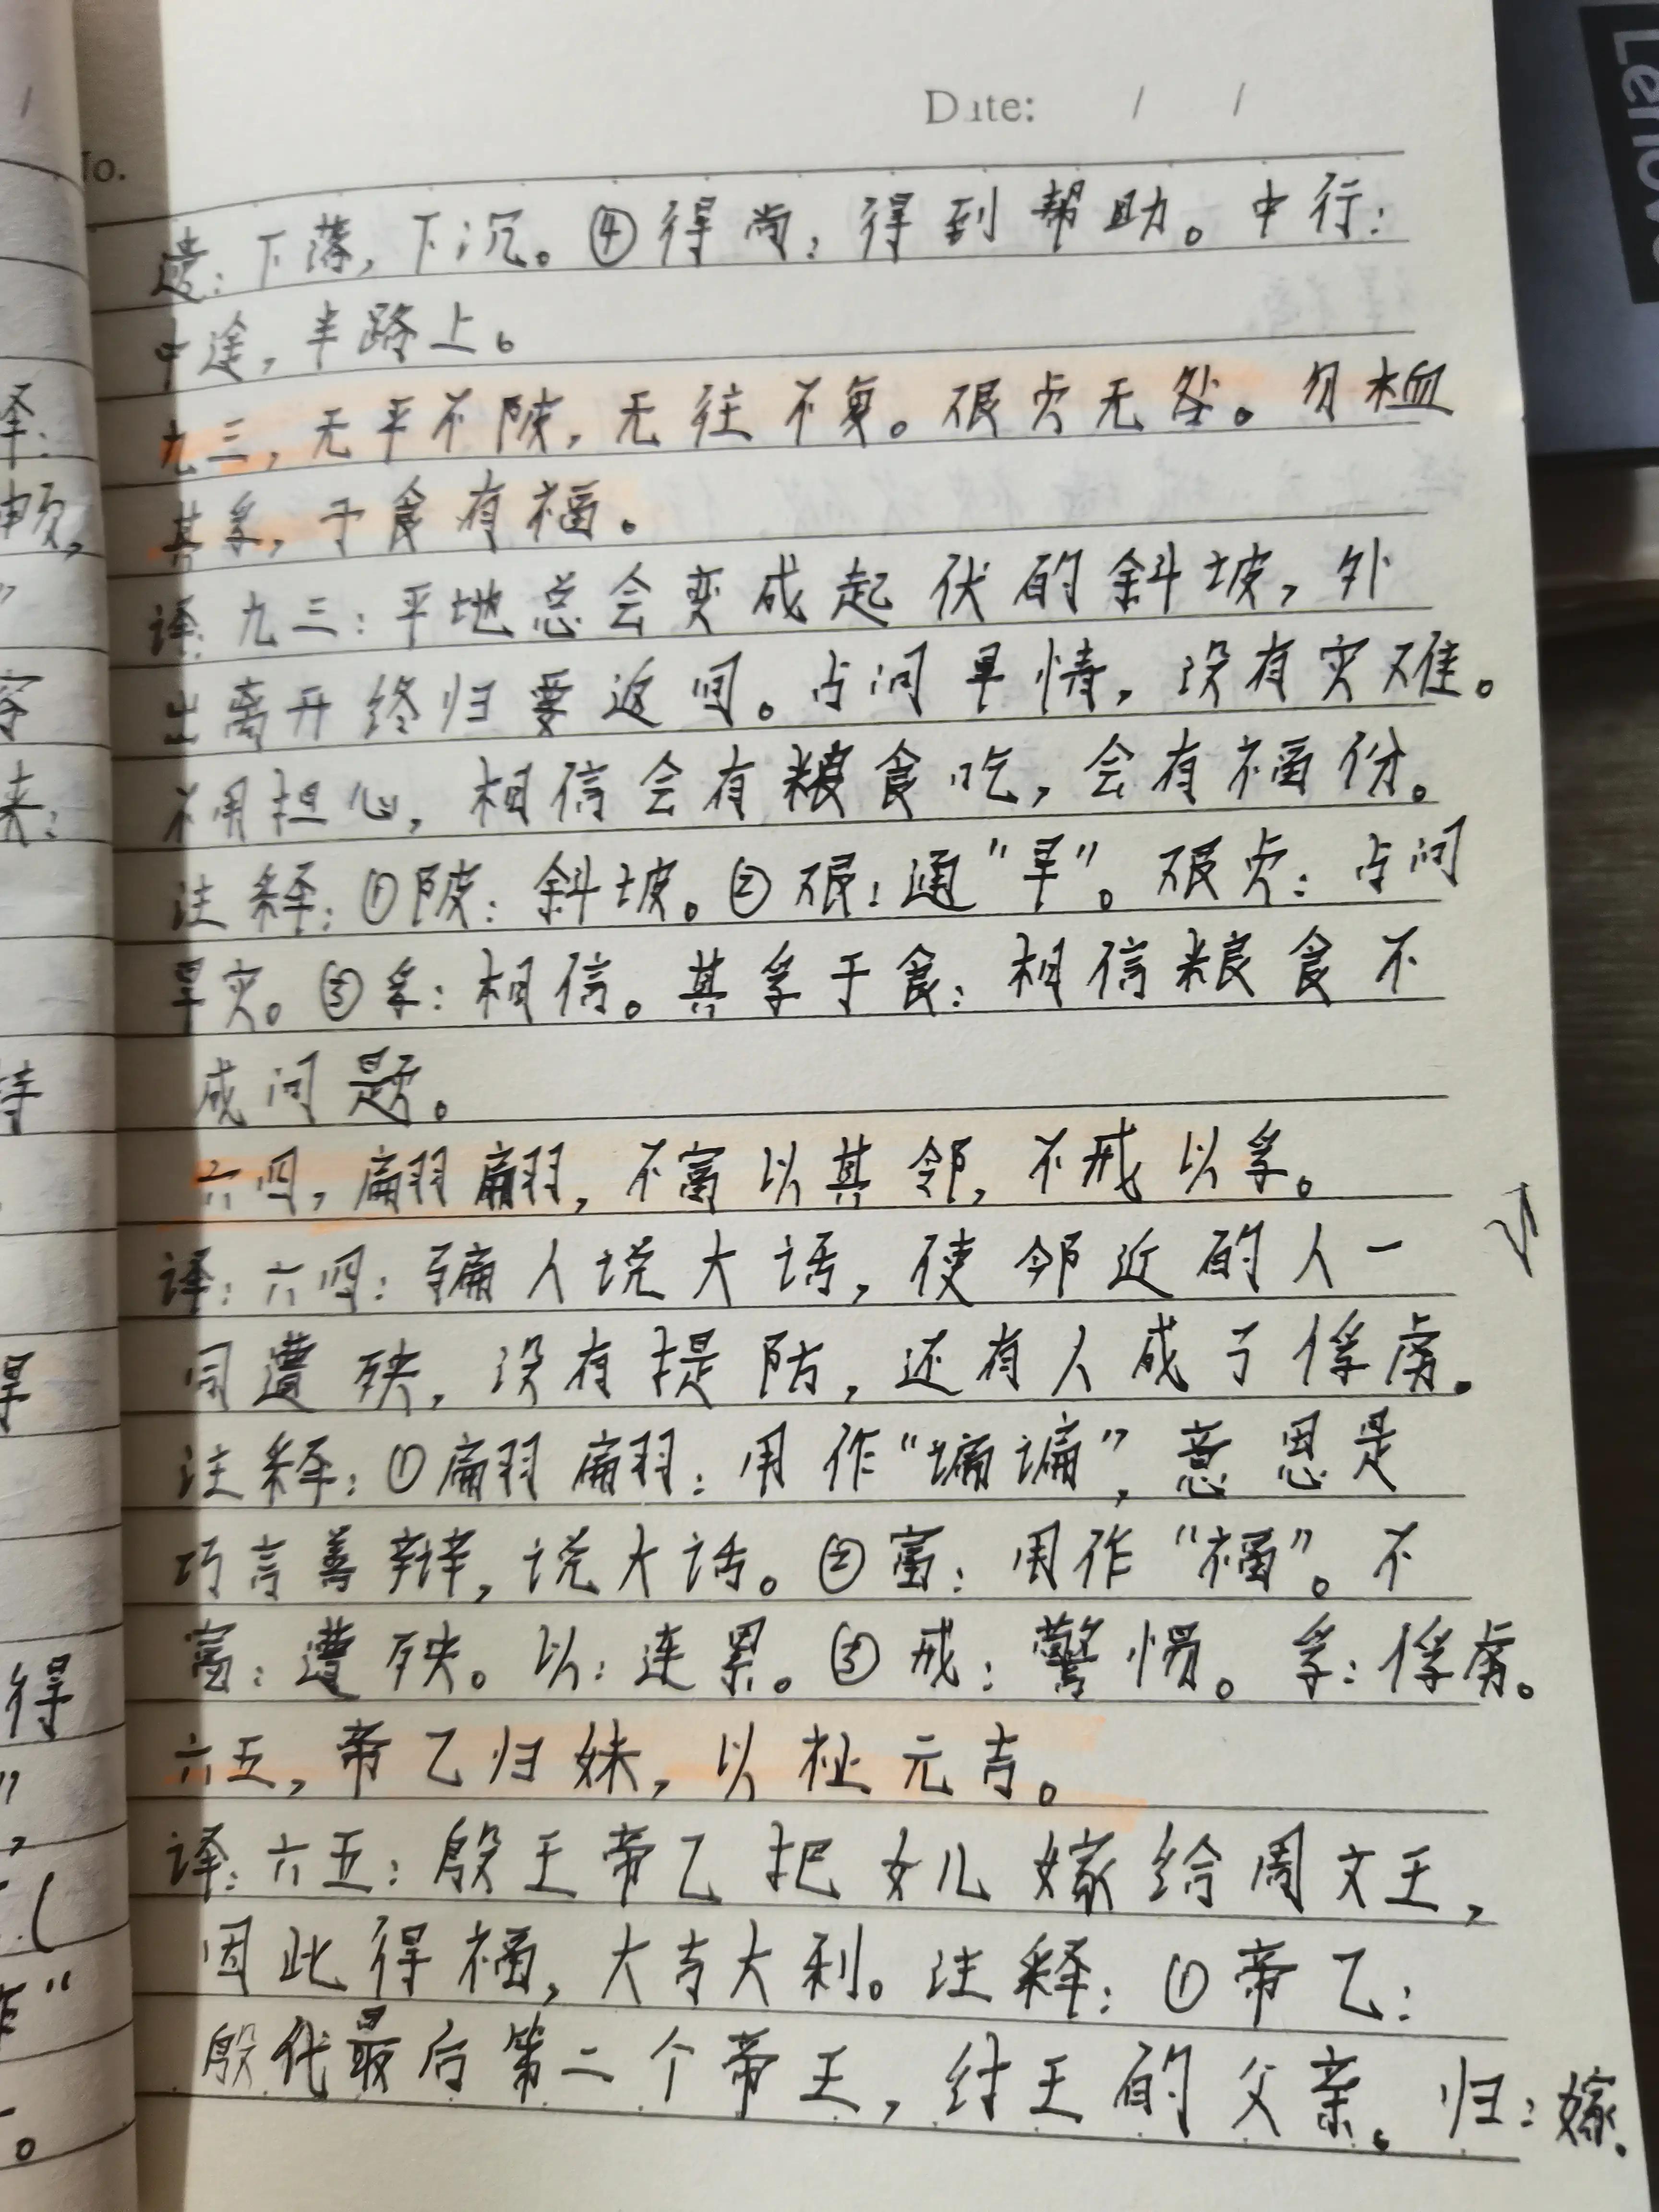 No.
Date: / /
遗：下落，下沉。④得尚：得到帮助。中行：
中途，半路上。
九三，无平不陂，无往不复。艰贞无咎。勿恤
其孚，于食有福。
译：九三：平地总会变成起伏的斜坡，外
出离开终归要返回。占问旱情，没有灾难。
不用担心，相信会有粮食吃，会有福份。
注释：①陂：斜坡。②艰：通“旱”。艰贞：占问
旱灾。③孚：相信。其孚于食：相信粮食不
成问题。
六四，翩翩，不富以其邻，不戒以孚。
译：六四：骗人说大话，使邻近的人一
同遭殃，没有提防，还有人成了俘虏。
注释：①翩翩：用作“谝谝”，意思是
巧言善辩，说大话。②富：用作“福”。不
富：遭殃。以：连累。③戒：警惕。孚：俘虏。
六五，帝乙归妹，以祉元吉。
译：六五：殷王帝乙把女儿嫁给周文王，
因此得福，大吉大利。注释：①帝乙：
殷代最后第二个帝王，纣王的父亲。归：嫁。
Lenovo